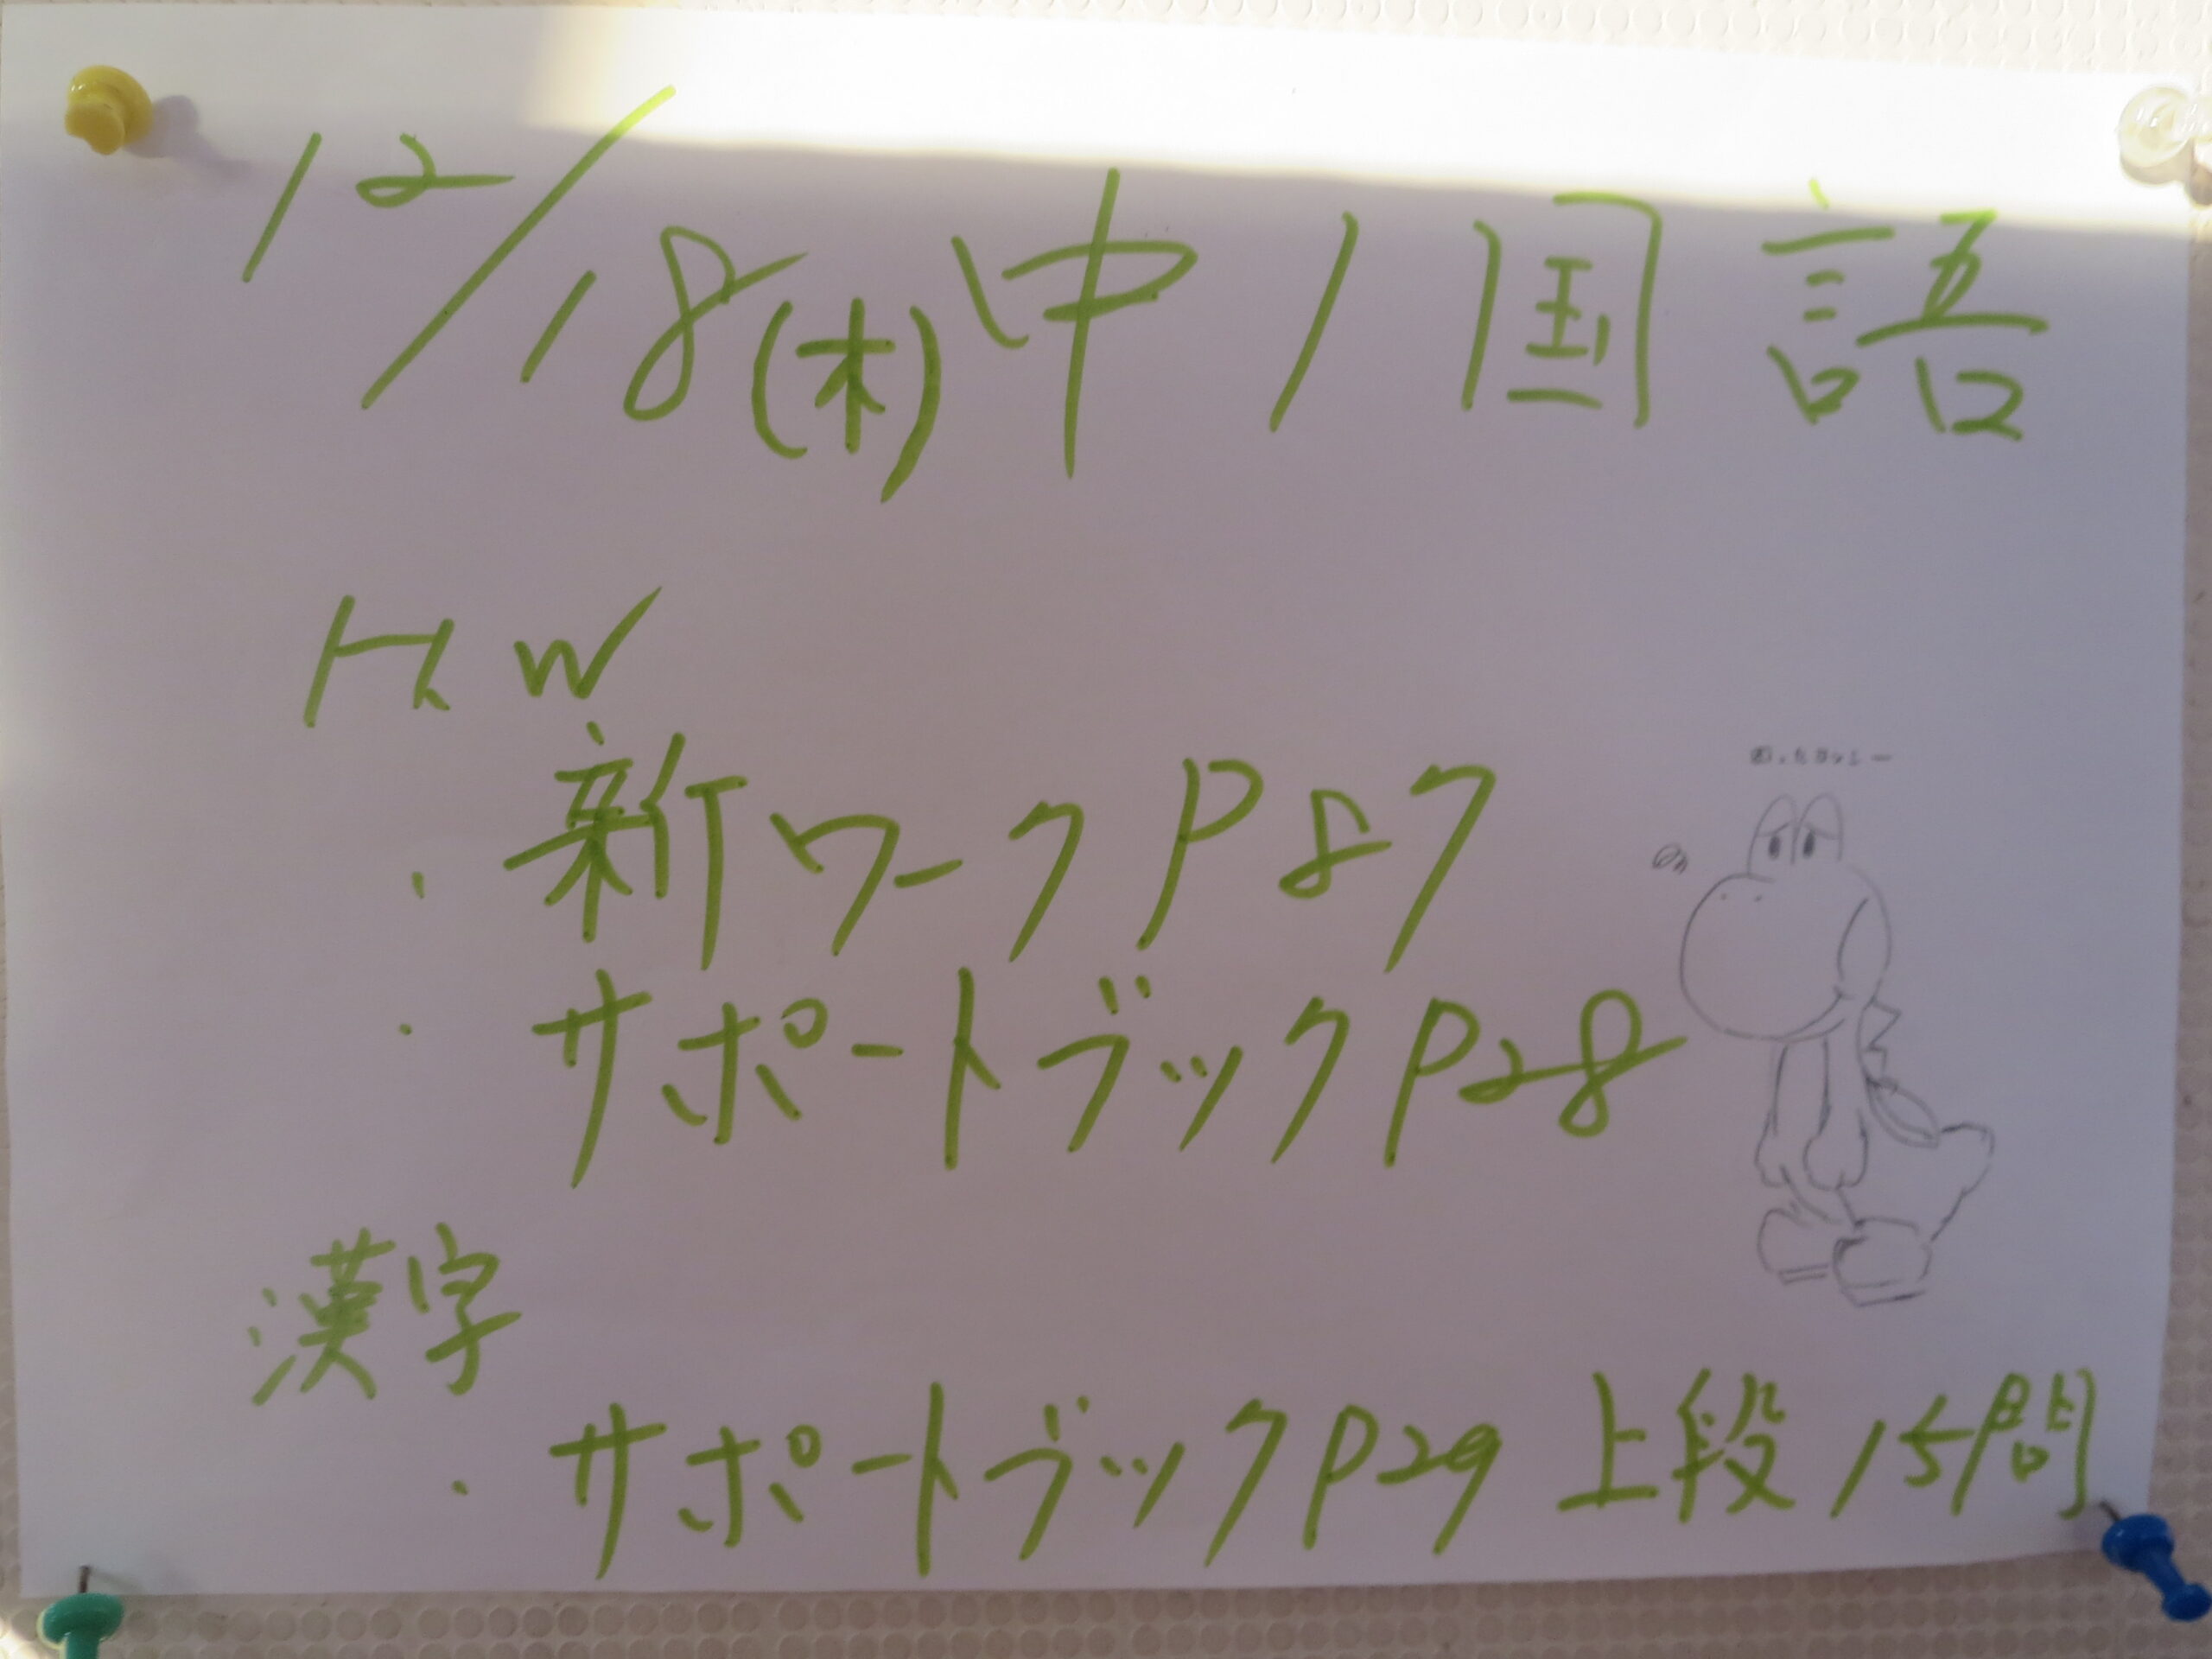 12/18(木)中1国語
HW
・新ワークP87
・サポートブックP28
困ったヨッシー
漢字
・サポートブックP29 上段 15問